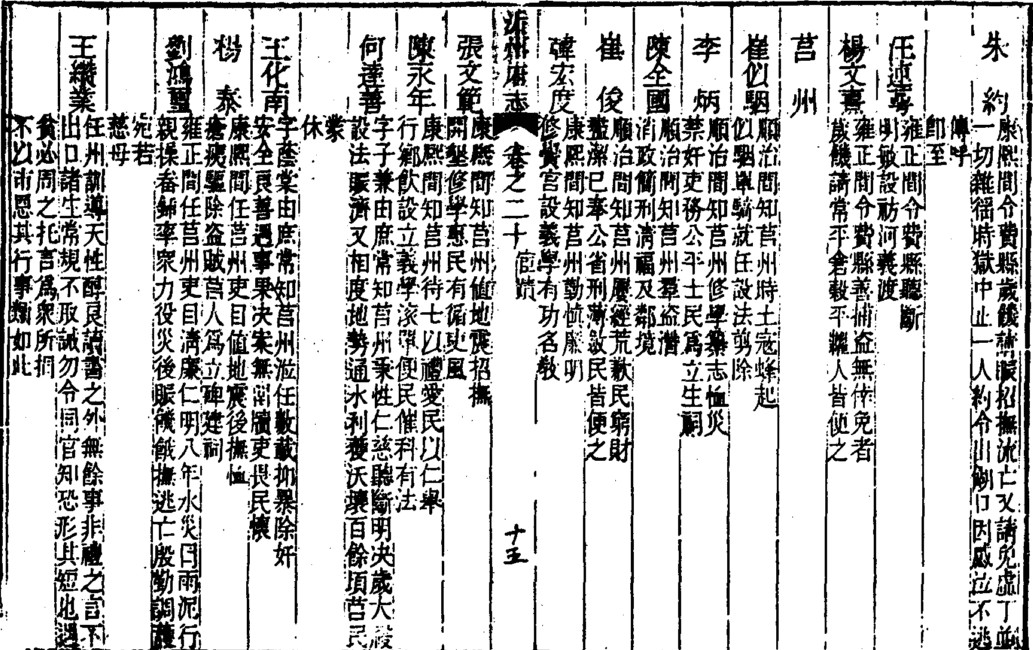 朱約
康熙間令費縣歲饑請賑招撫流亡又請免虛丁並
一切雜徭時獄中止一人約令出獄因感泣不逃
傳呼
即至
任連壽
雍正間令費縣聽斷
明敏設祊河義渡
楊文壽
雍正間令費縣善捕盜無倖免者
歲饑請常平倉穀平糶人皆便之
莒州
崔似駰
順治間知莒州時土寇蜂起
似駰單騎就任設法剪除
李炳
順治間知莒州修學纂志恤災
禁奸吏務公平士民為立生祠
陳全國
順治間知莒州羣盜潛
消政簡刑清福及鄰境
崔俊
順治間知莒州屢經荒歉民窮財
盡潔己奉公省刑薄歛民皆便之
韓宏度
康熙間知莒州勤慎廉明
修黌宮設義學有功名教
沂州府志
卷之二十
宦蹟
十五
張文範
康熙間知莒州值地震招撫
開墾修學惠民有循吏風
陳永年
康熙間知莒州待士以禮愛民以仁舉
行鄉飲設立義學滚單便民催科有法
何達善
字子兼由庶常知莒州秉性仁慈聽斷明決歲大祲
設法賑濟又相度地勢通水利獲沃壤百餘頃莒民
蒙
休
王化南
字蔭棠由庶常知莒州涖任數載抑暴除奸
安全良善遇事果决案無留牘吏畏民懷
楊泰
康熙間任莒州吏目值地震後撫恤
瘡痍驅除盗賊莒人為立碑建祠
劉鴻璽
雍正間任莒州吏目清廉仁明八年水災冒雨泥行
親操畚鍤率衆力役災後賑饑餓撫逃亡殷勤調護
宛若
慈母
王纘業
任州訓導天性醇良讀書之外無餘事非禮之言不
出口諸生常規不取誡勿令同官知恐形其短也遇
貧必周之托言為衆所捐
不以市恩其行事類如此